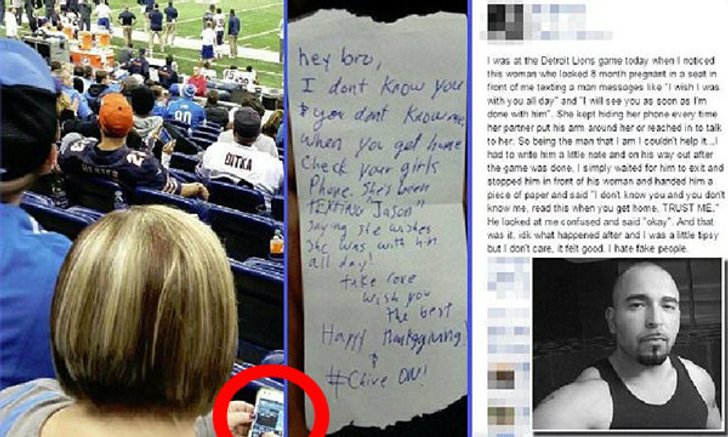 HESTER
23
DITKA
80
hey bro,
I dont know you
& you dont know me,
when you get home
check your girls
Phone. She's been
TEXTING "Jason"
saying she wishes
she was with him
all day!
take care
wish you
the best
Happy Thanksgiving!
&
#Chive ON!
I was at the Detroit Lions game today when I noticed
this woman who looked 8 month pregnant in a seat in
front of me texting a man messages like "I wish I was
with you all day" and "I will see you as soon as I'm
done with him". She kept hiding her phone every time
her partner put his arm around her or reached in to talk
to her. So being the man that I am I couldn't help it...I
had to write him a little note and on his way out after
the game was done, I simply waited for him to exit and
stopped him in front of his woman and handed him a
piece of paper and said "I dont know you and you don't
know me, read this when you get home, TRUST ME."
He looked at me confused and said "okay". And that
was it, idk what happened after and I was a little tipsy
but I don't care, it felt good. I hate fake people.